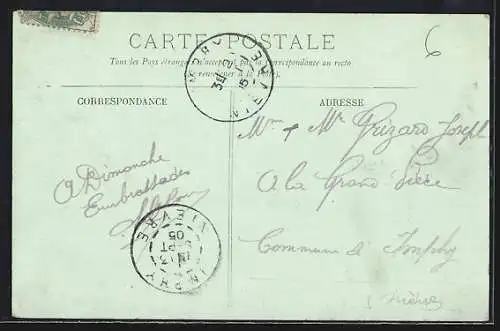 CARTE POSTALE
Tous les Pays étrangers n'acceptent pas la correspondance au recto
(se renseigner à la Poste)
6
CORRESPONDANCE
ADRESSE
A Dimanche
Embrassades
Mr + Me Grizard Joseph
A la Grand Pièce
Commune d'Imphy
(Nièvre)
IMPHY
NIEVRE
05